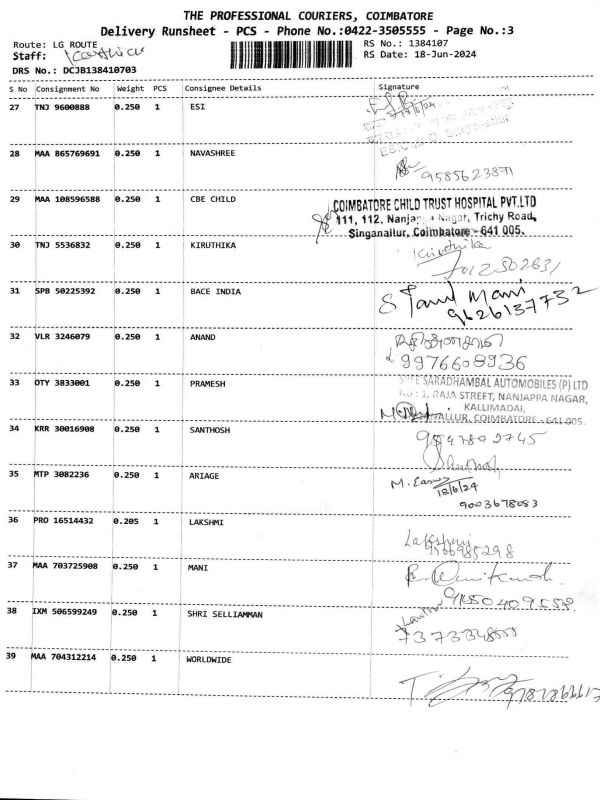 THE PROFESSIONAL COURIERS, COIMBATORE
Delivery Runsheet - PCS - Phone No.:0422-3505555 - Page No.:3
Route: LG ROUTE
RS No.: 1384107
Staff: Karthick
RS Date: 18-Jun-2024
DRS No.: DCJB138410703
S No Consignment No Weight PCS Consignee Details Signature
27 TNJ 9600888 0.250 1 ESI
28 MAA 865769691 0.250 1 NAVASHREE
9585623871
29 MAA 108596588 0.250 1 CBE CHILD
COIMBATORE CHILD TRUST HOSPITAL PVT.LTD
111, 112, Nanjappa Nagar, Trichy Road,
Singanallur, Coimbatore - 641 005.
30 TNJ 5536832 0.250 1 KIRUTHIKA
Kiruthika
7012502631
31 SPB 50225392 0.250 1 BACE INDIA
S Tamil Mani
9626137732
32 VLR 3246079 0.250 1 ANAND
9976608936
33 OTY 3833001 0.250 1 PRAMESH
SHREE SARADHAMBAL AUTOMOBILES (P) LTD
NO : 1, RAJA STREET, NANJAPPA NAGAR,
KALLIMADAI,
COIMBATORE - 641 005.
34 KRR 30016908 0.250 1 SANTHOSH
Santhosh
35 MTP 3082236 0.250 1 ARIAGE
M. Easwar
18/6/24
9003678083
36 PRO 16514432 0.205 1 LAKSHMI
Lakshmi
37 MAA 703725908 0.250 1 MANI
38 IXM 506599249 0.250 1 SHRI SELLIAMMAN
39 MAA 704312214 0.250 1 WORLDWIDE